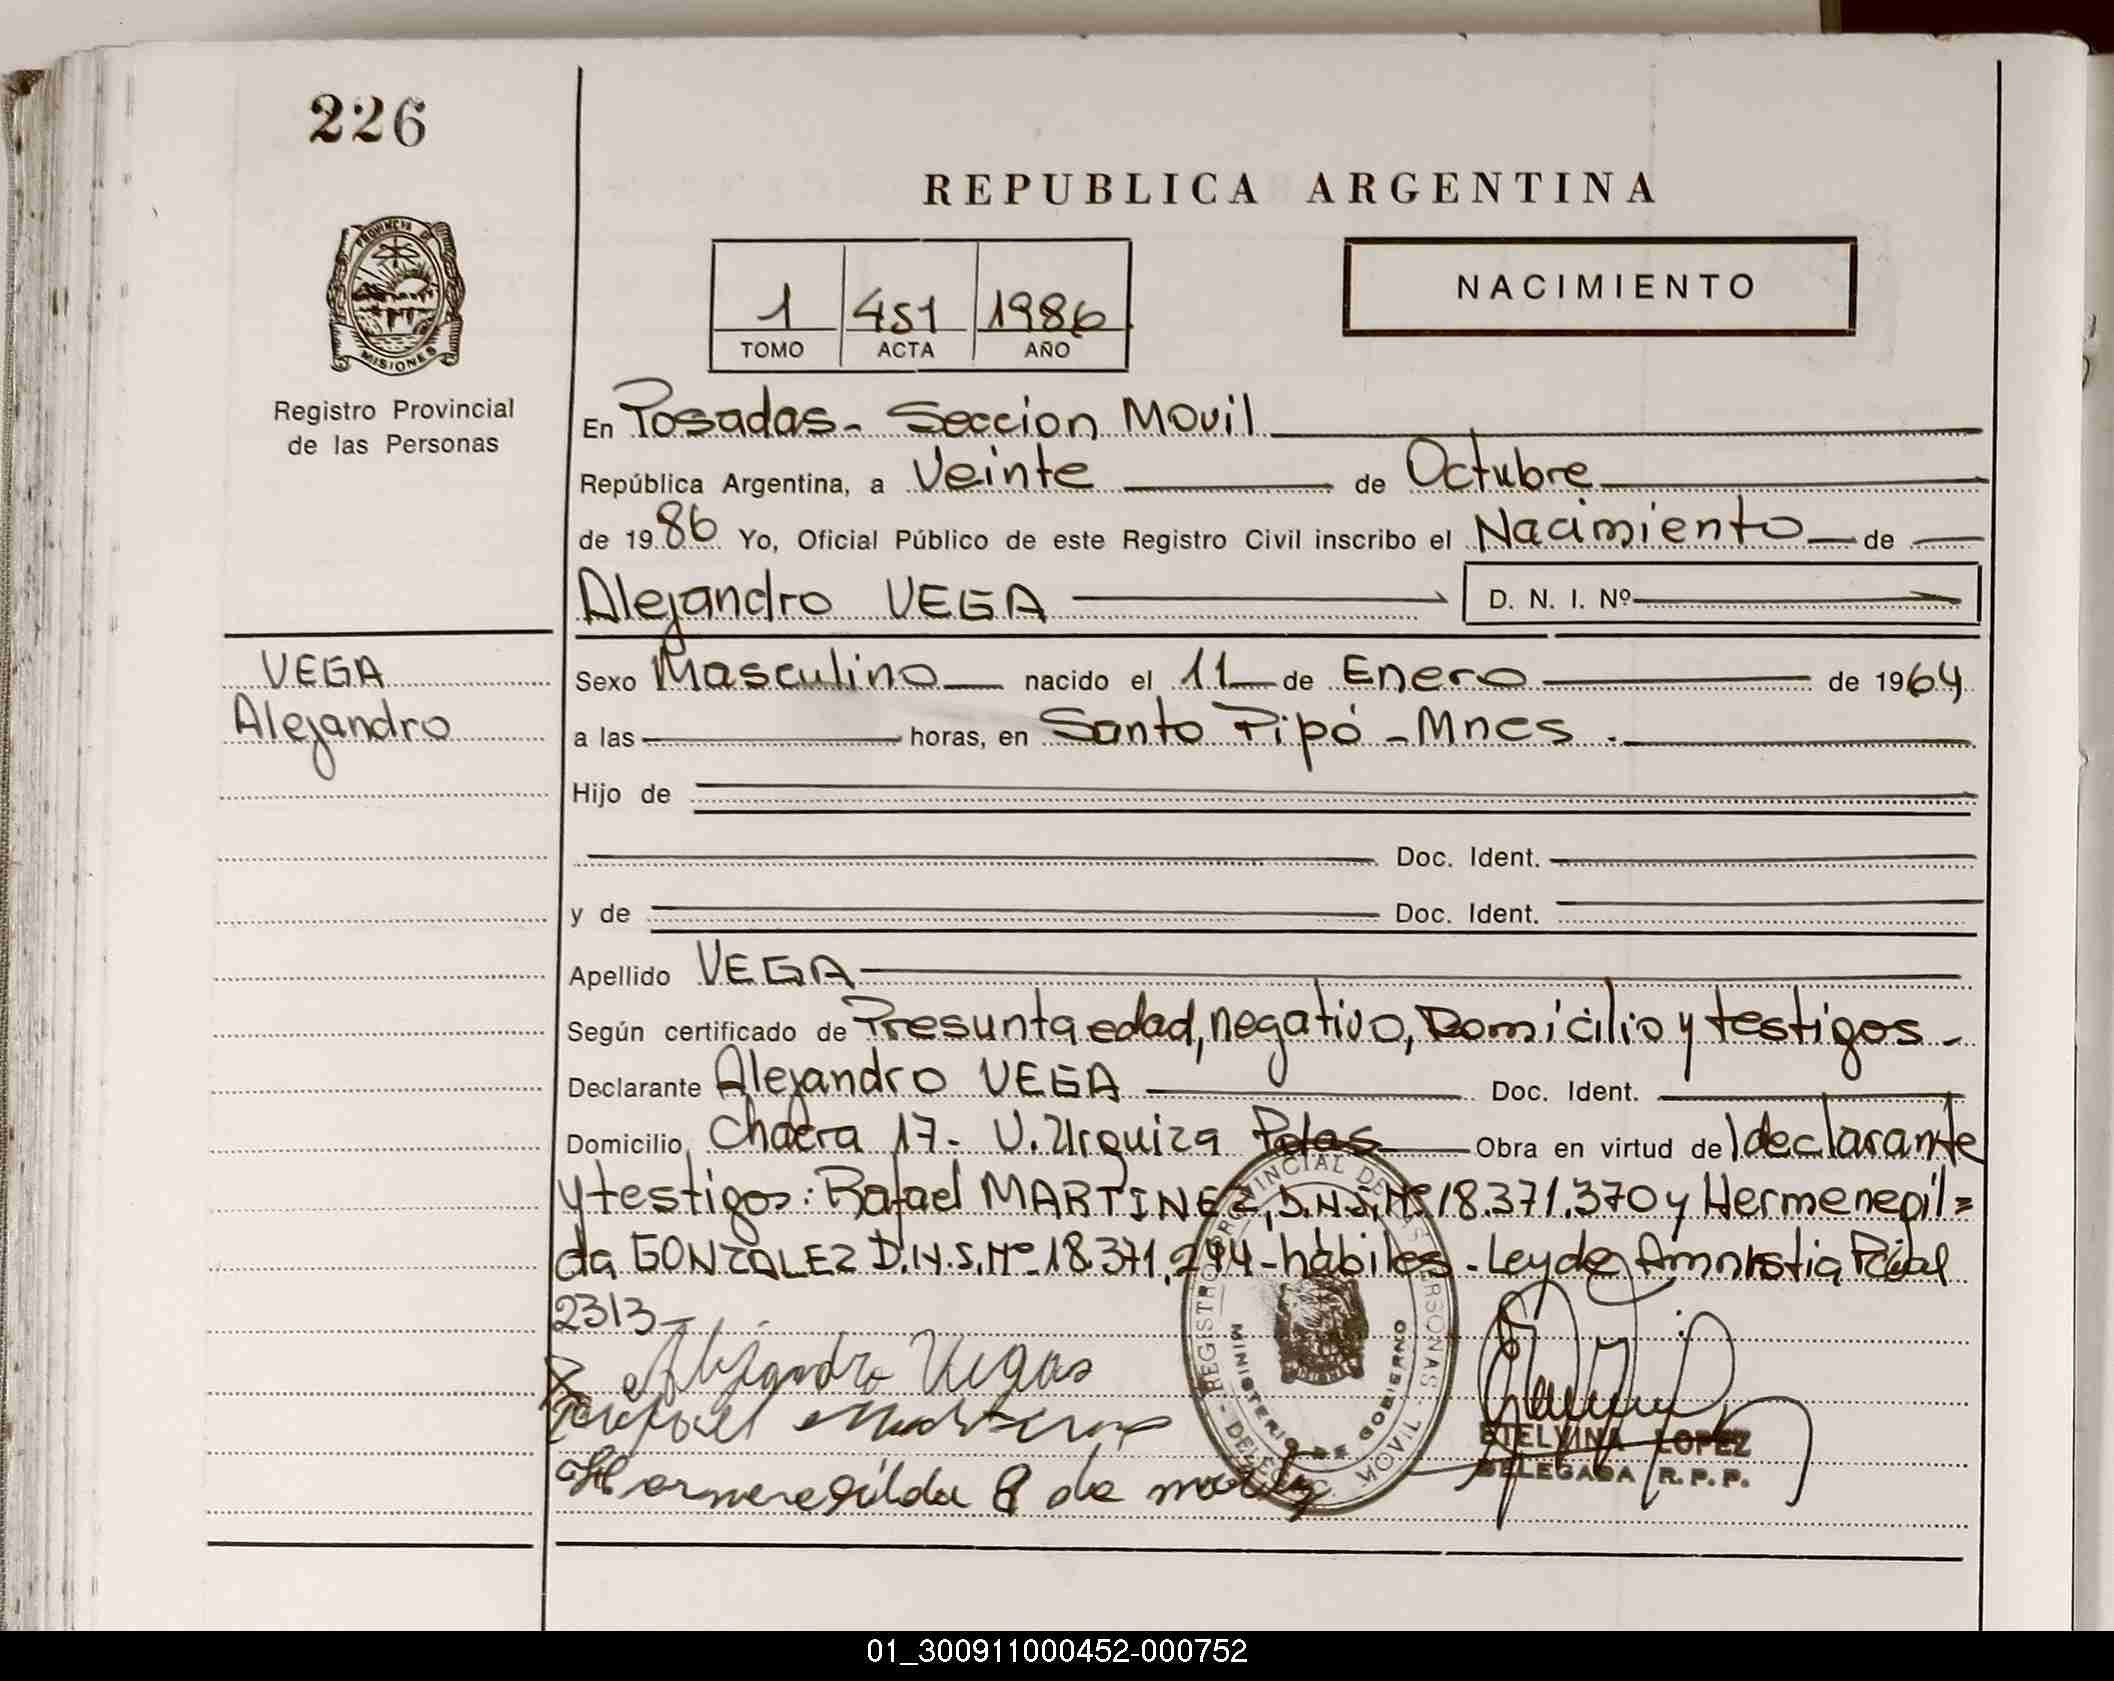 226
REPUBLICA ARGENTINA
PROVINCIA DE
MISIONES
1 451 1986
TOMO ACTA AÑO
NACIMIENTO
Registro Provincial
de las Personas
En Posadas - Seccion Movil
República Argentina, a Veinte de Octubre
de 1986 Yo, Oficial Público de este Registro Civil inscribo el Nacimiento de
Alejandro VEGA D. N. I. Nº
VEGA
Alejandro
Sexo Masculino nacido el 11 de Enero de 1964
a las horas, en Santo Pipó - Mnes.
Hijo de
Doc. Ident.
y de Doc. Ident.
Apellido VEGA
Según certificado de Presunta edad, negativo, Domicilio y testigos -
Declarante Alejandro VEGA Doc. Ident.
Domicilio Chacra 17 - V. Urquiza Pdas Obra en virtud del declarante
y testigos: Rafael MARTINEZ, Nº 18.371.370 y Hermenegil=
da GONZALEZ Nº 18.371.244 - hábiles - Ley de Amnistia Pcial
2313 -
Alejandro Vegas
Hermenegilda G de
REGISTRO PROVINCIAL DE LAS PERSONAS - DELEGAC. MOVIL
MINISTERIO DE GOBIERNO
ETELVINA LOPEZ
DELEGADA R.P.P.
01_300911000452-000752